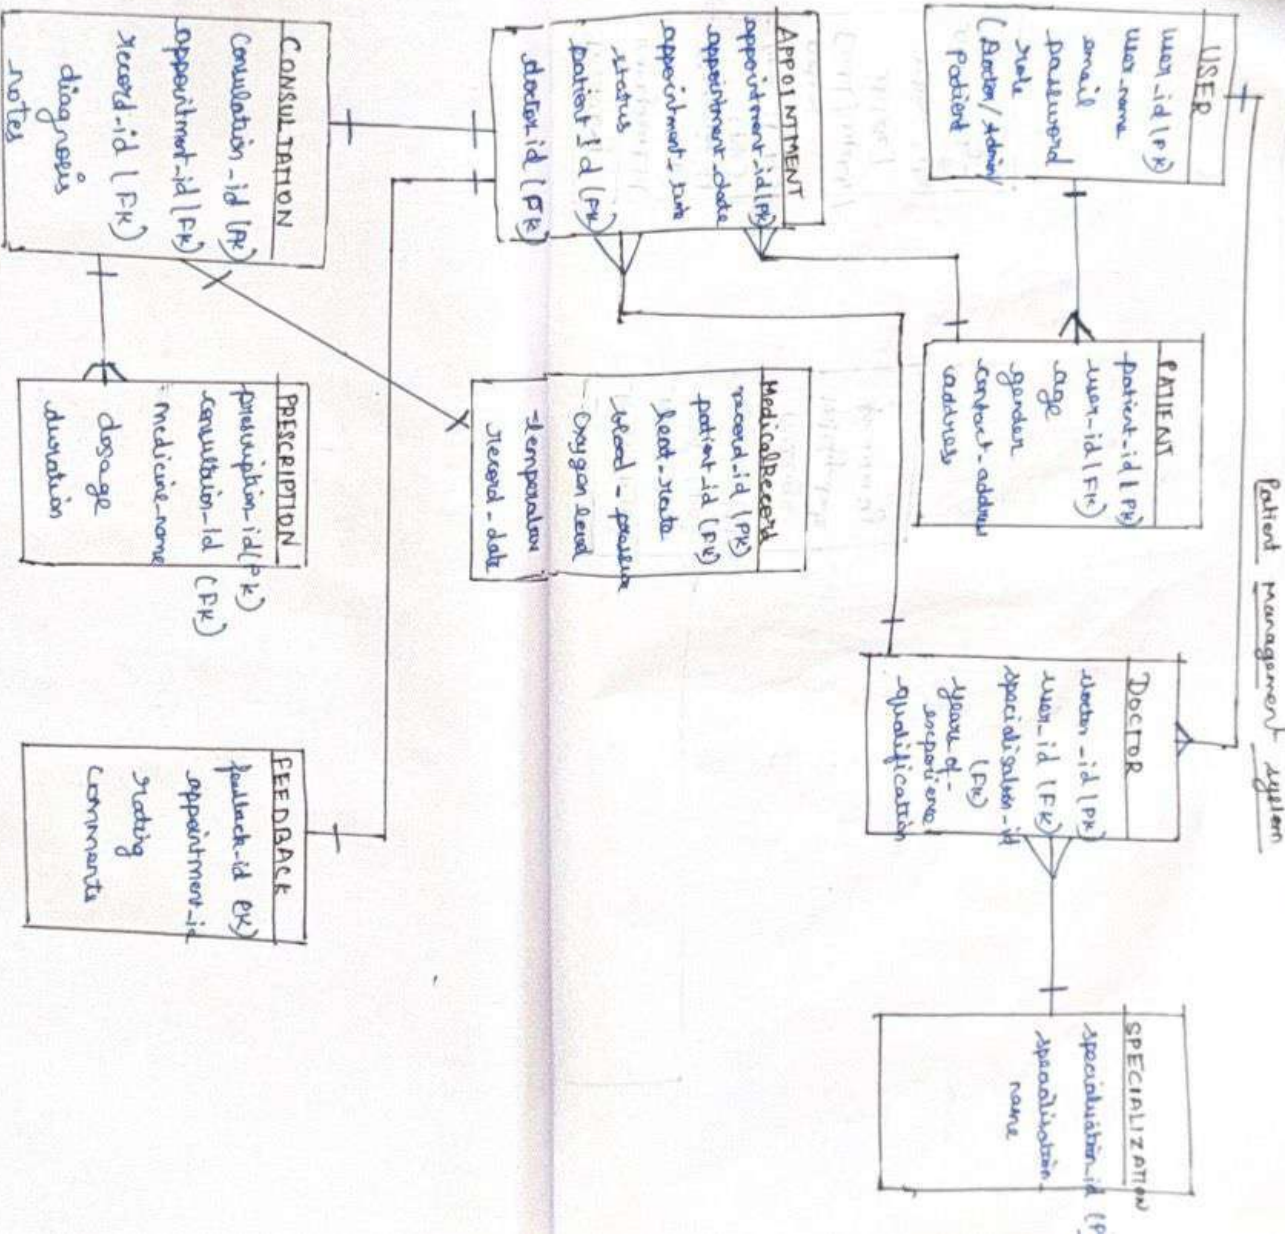 Patient Management System
USER
user_id (PK)
user_name
email
password
role
(Doctor/Admin/
Patient
PATIENT
patient_id (PK)
user_id (FK)
age
gender
contact_addres
address
DOCTOR
doctor_id (PK)
user_id (FK)
specialisation_id
(FK)
years of-
experience
qualification
SPECIALIZATION
specialization_id (P
specialisation_
name
APPOINTMENT
appointment_id (PK)
appointment_date
appointment_time
status
patient Id (FK)
doctor id (FK)
MedicalRecord
record_id (PK)
patient_id (FK)
heart_rate
blood_pressure
Oxygen level
temperature
record_date
CONSULTATION
Consulation_id (PK)
appointment_id (FK)
record_id (FK)
diagnosis
notes
PRESCRIPTION
prescription_id (PK)
consultation_id
(FK)
medicine_name
dosage
duration
FEEDBACK
feedback_id PK)
appointment_id
rating
comments